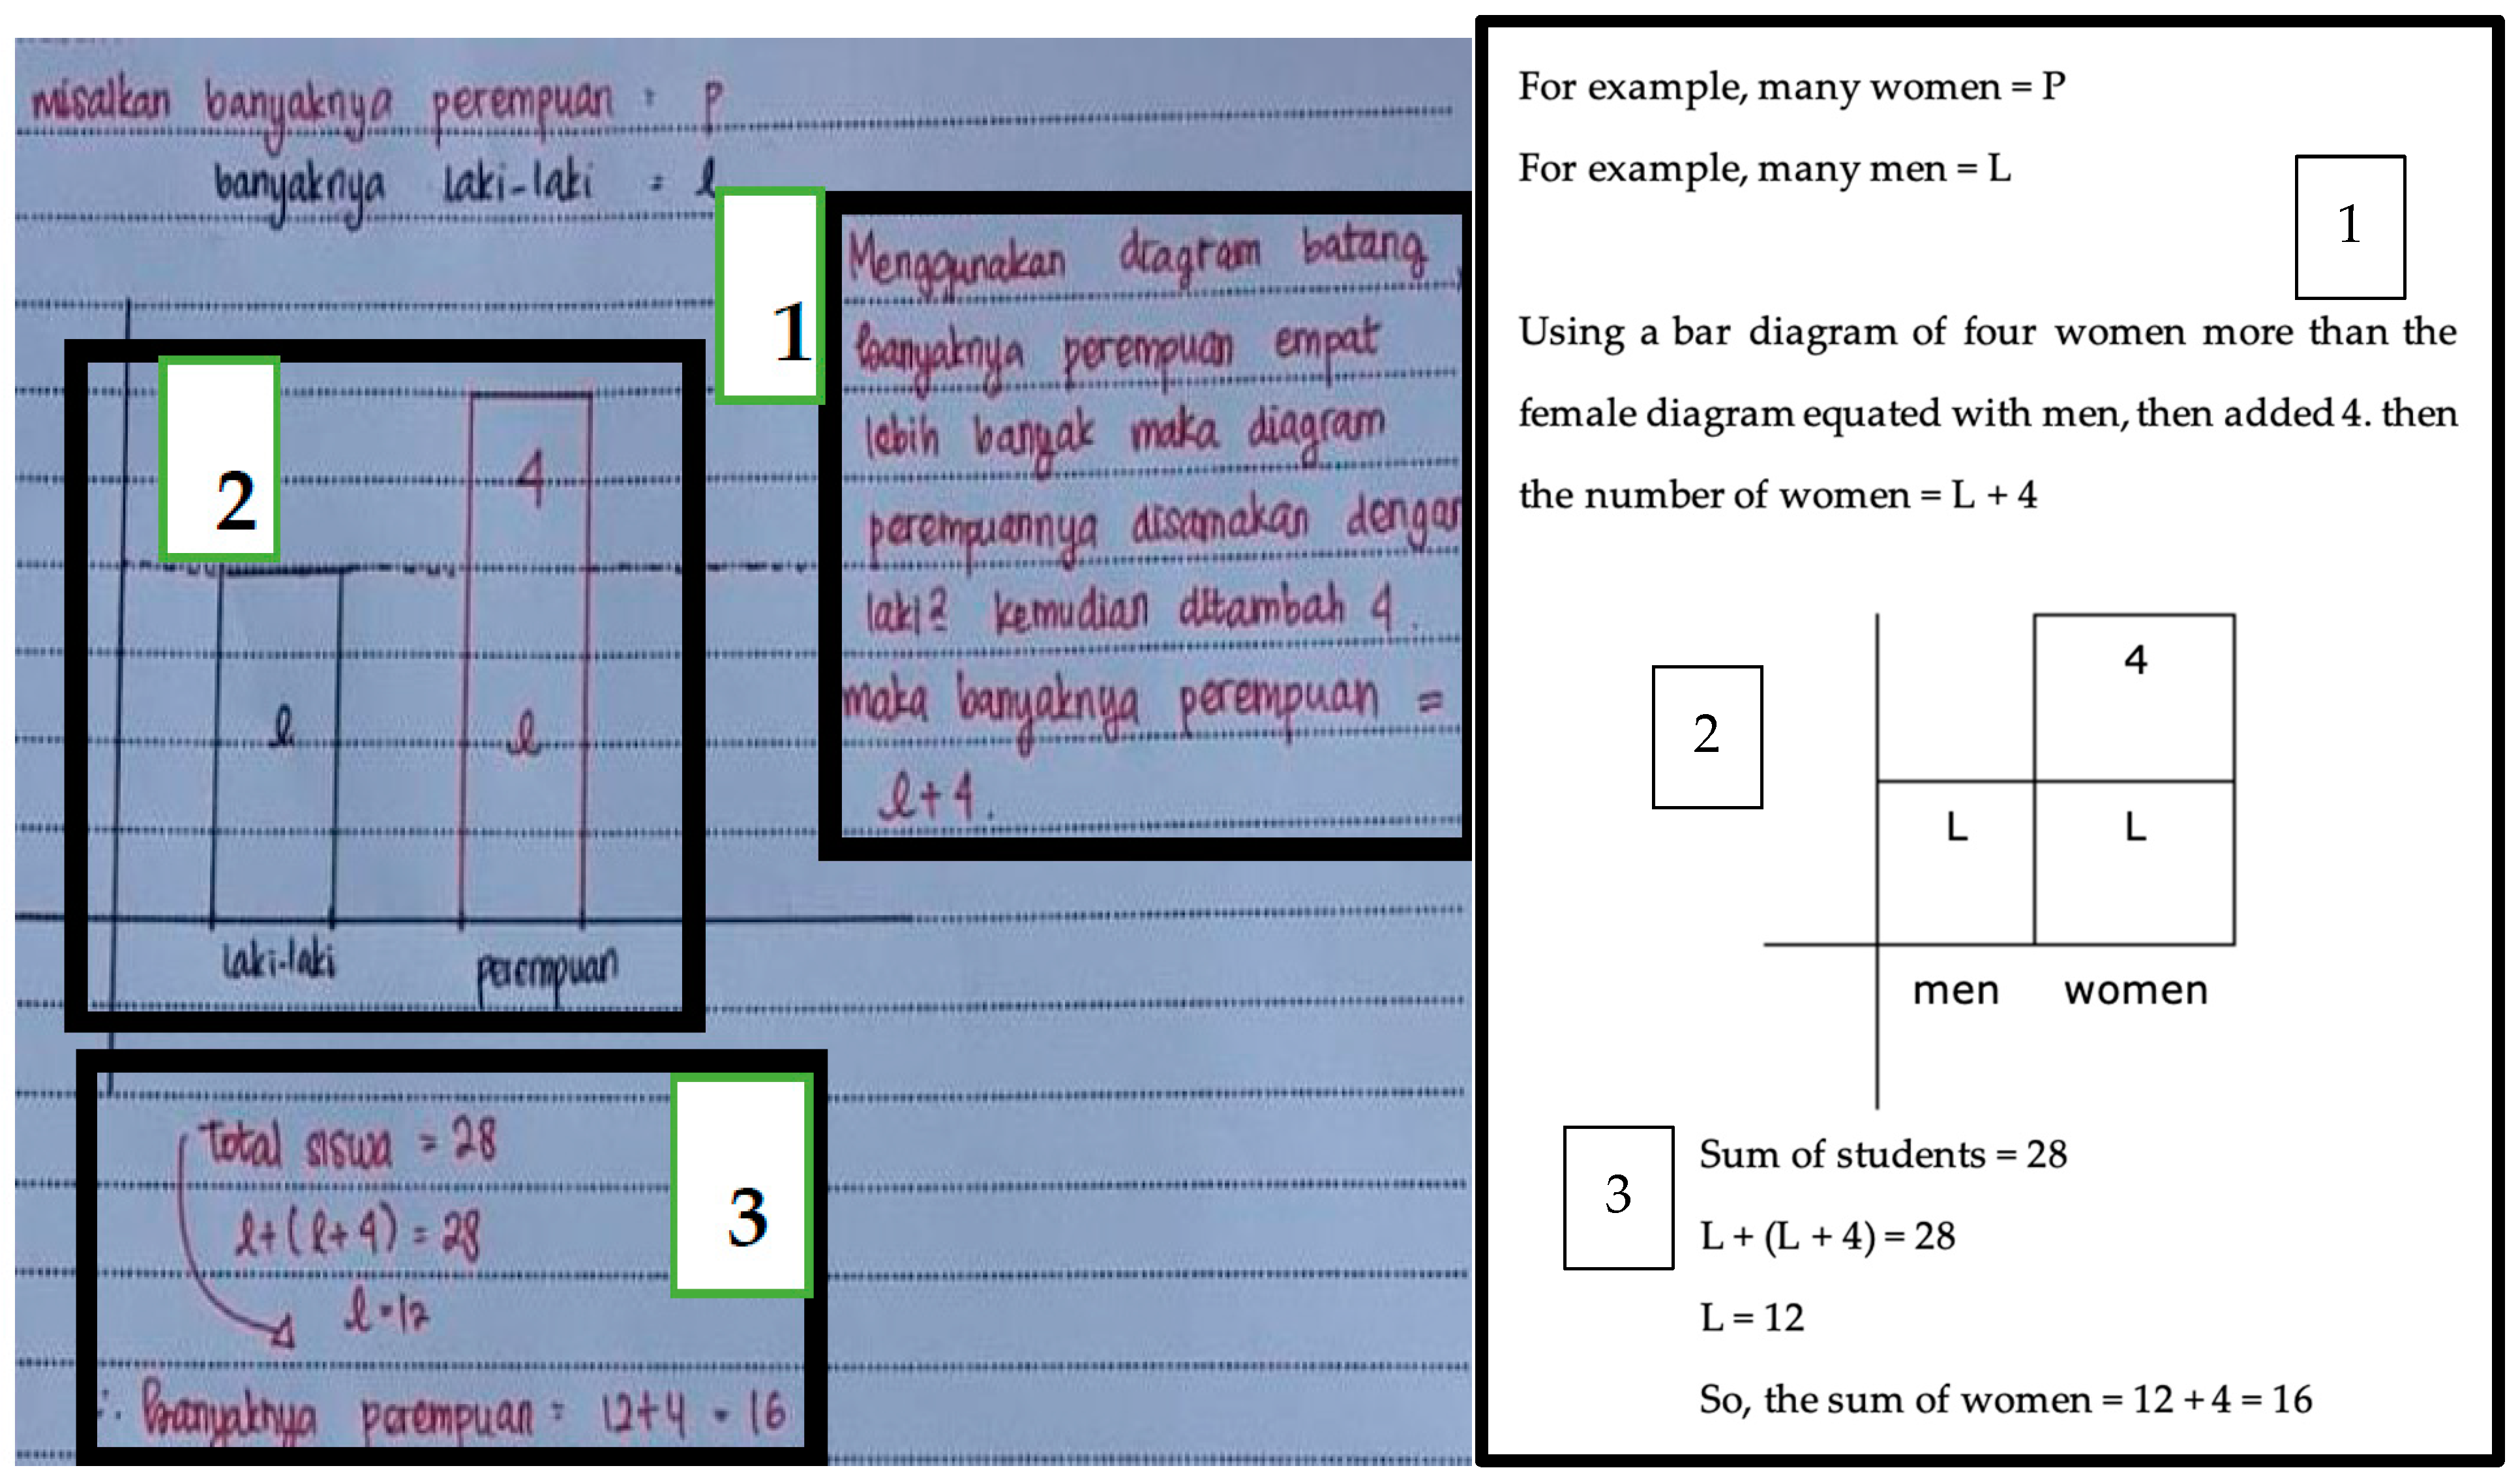 misalkan banyaknya perempuan = P
banyaknya laki-laki = l
1
Menggunakan diagram batang,
banyaknya perempuan empat
lebih banyak maka diagram
perempuannya disamakan dengan
laki2 kemudian ditambah 4.
maka banyaknya perempuan =
l + 4.
2
4
l
l
laki-laki
perempuan
3
total siswa = 28
l + (l + 4) = 28
l = 12
∴ Banyaknya perempuan = 12 + 4 = 16
For example, many women = P
For example, many men = L
1
Using a bar diagram of four women more than the
female diagram equated with men, then added 4. then
the number of women = L + 4
2
4
L
L
men
women
3
Sum of students = 28
L + (L + 4) = 28
L = 12
So, the sum of women = 12 + 4 = 16